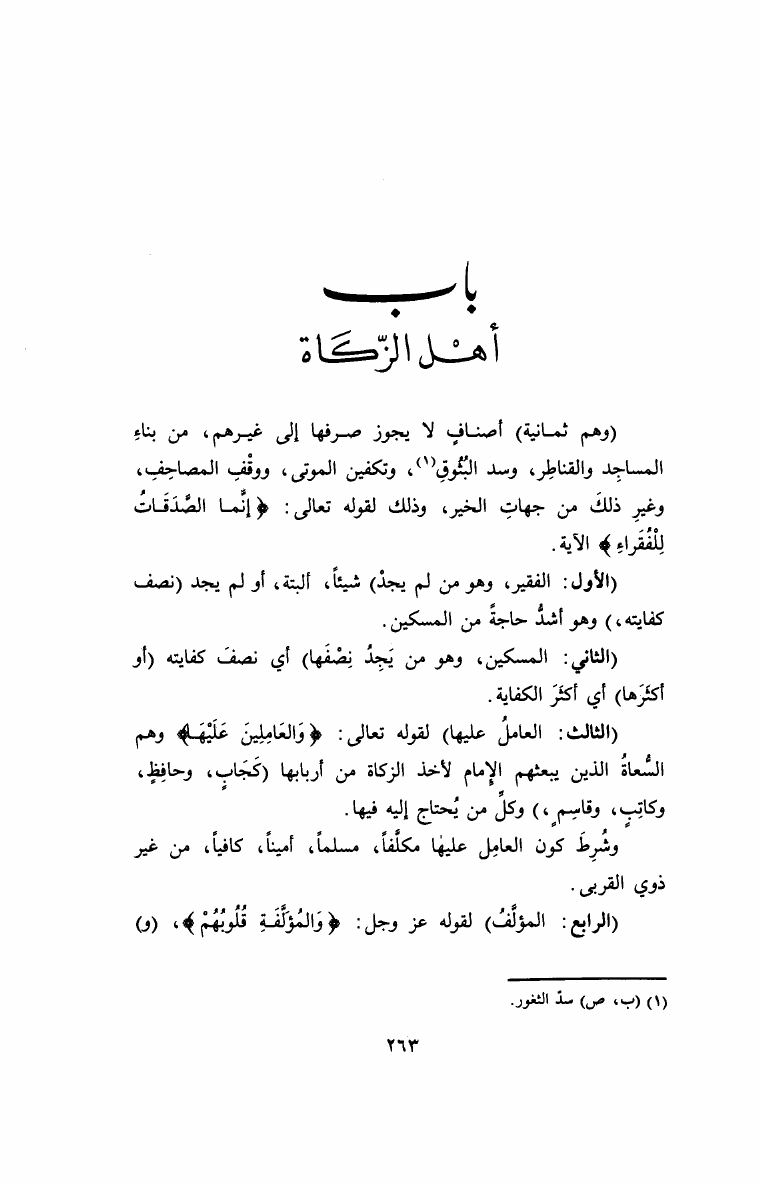 باب
أهْل الزّكَاة
(وهم ثمانية) أصنافٍ لا يجوز صرفها إلى غيرهم، من بناءِ
المساجِد والقناطِر، وسد البُثُوقِ(١)، وتكفين الموتى، ووقْفِ المصاحِفِ،
وغيرِ ذلكَ من جهاتِ الخير، وذلك لقوله تعالى: ﴿إنَّما الصَّدَقَاتُ
لِلْفُقَراءِ﴾ الآية.
(الأول: الفقير، وهو من لم يجدْ) شيئاً، ألبتة، أو لم يجد (نصف
كفايته،) وهو أشدُّ حاجةً من المسكين.
(الثاني: المسكين، وهو من يَجِدُ نِصْفَها) أي نصفَ كفايته (أو
أكثَرَها) أي أكثَرَ الكفاية.
(الثالث: العاملُ عليها) لقوله تعالى: ﴿وَالعَامِلِينَ عَلَيْهَا﴾ وهم
السُّعاةُ الذين يبعثهم الإمام لأخذ الزكاة من أربابها (كَجَابٍ، وحافِظٍ،
وكاتِبٍ، وقاسِمٍ،) وكلِّ من يُحتاج إليه فيها.
وشُرِطَ كون العامِل عليها مكلَّفاً، مسلماً، أميناً، كافياً، من غير
ذوي القربى.
(الرابع: المؤلَّفُ) لقوله عز وجل: ﴿وَالمُؤلَّفَةِ قُلُوبُهُمْ﴾، (و)
(١) (ب، ص) سدّ الثغور.
٢٦٣